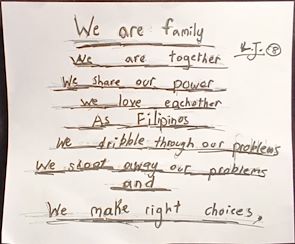 We are family
We are together
We share our power
We love eachother
As Filipinos
We dribble through our problems
We shoot away our problems
and
We make right choices,
L.J. 8